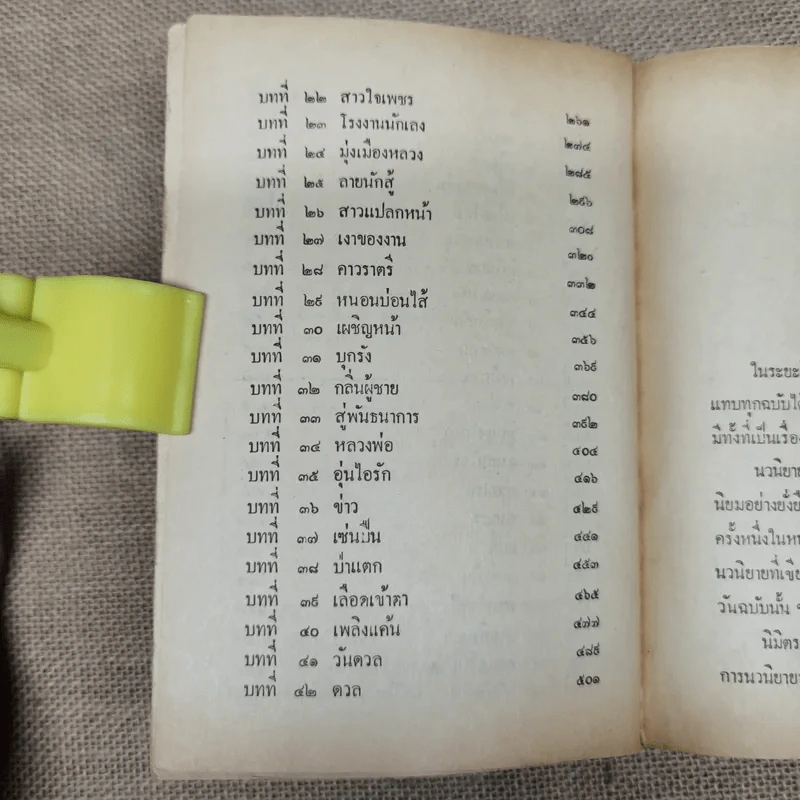 บทที่ ๒๒ สาวใจเพชร ๒๖๑
บทที่ ๒๓ โรงงานนักเลง ๒๗๔
บทที่ ๒๔ มุ่งเมืองหลวง ๒๘๕
บทที่ ๒๕ ลายนักสู้ ๒๙๖
บทที่ ๒๖ สาวแปลกหน้า ๓๐๘
บทที่ ๒๗ เงาของงาน ๓๒๐
บทที่ ๒๘ คาวราตรี ๓๓๒
บทที่ ๒๙ หนอนบ่อนไส้ ๓๔๔
บทที่ ๓๐ เผชิญหน้า ๓๕๖
บทที่ ๓๑ บุกรัง ๓๖๙
บทที่ ๓๒ กลิ่นผู้ชาย ๓๘๐
บทที่ ๓๓ สู่พันธนาการ ๓๙๒
บทที่ ๓๔ หลวงพ่อ ๔๐๔
บทที่ ๓๕ อุ่นไอรัก ๔๑๖
บทที่ ๓๖ ข่าว ๔๒๙
บทที่ ๓๗ เซ่นปืน ๔๔๑
บทที่ ๓๘ ป่าแตก ๔๕๓
บทที่ ๓๙ เลือดเข้าตา ๔๖๕
บทที่ ๔๐ เพลิงแค้น ๔๗๗
บทที่ ๔๑ วันดวล ๔๘๙
บทที่ ๔๒ ดวล ๕๐๑
ในระยะ
แทบทุกฉบับได้
มีทั้งที่เป็นเรื่อง
นวนิยาย
นิยมอย่างยั่งยืน
ครั้งหนึ่งในห
นวนิยายที่เขีย
วันฉบับนั้น
นิมิตร
การนวนิยาย